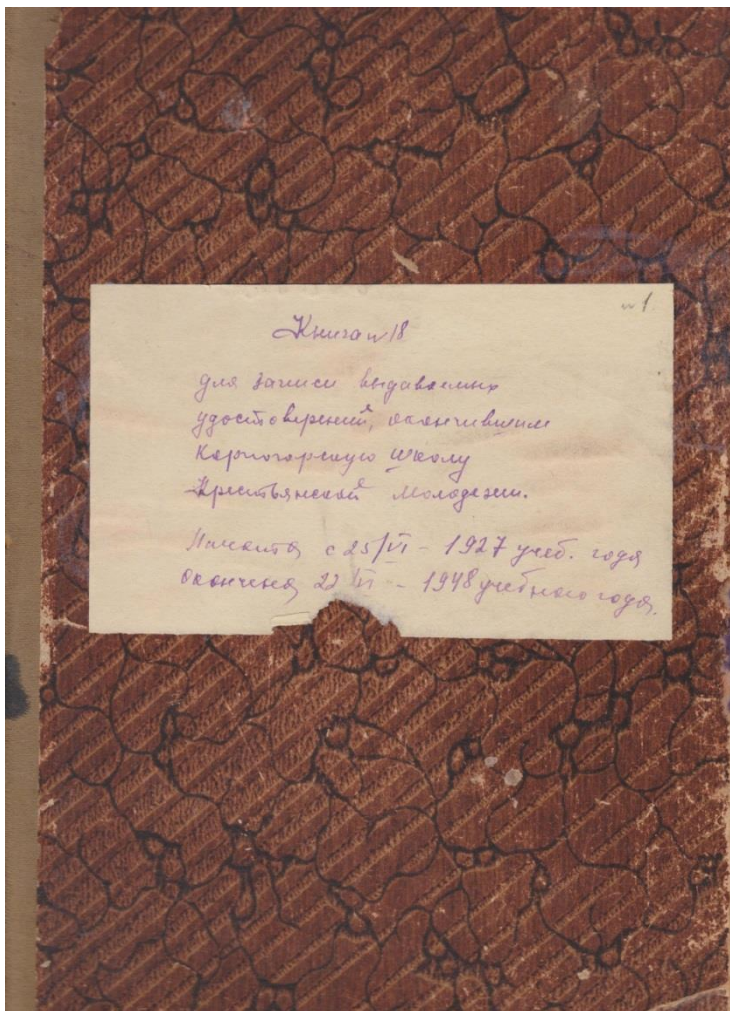 №1
Книга №18
для записи выдаваемых
удостоверений, окончившим
Карпогорскую школу
Крестьянской молодежи.
Начата с 25/VI - 1927 учеб. года
окончена 22/VI - 1948 учебного года.